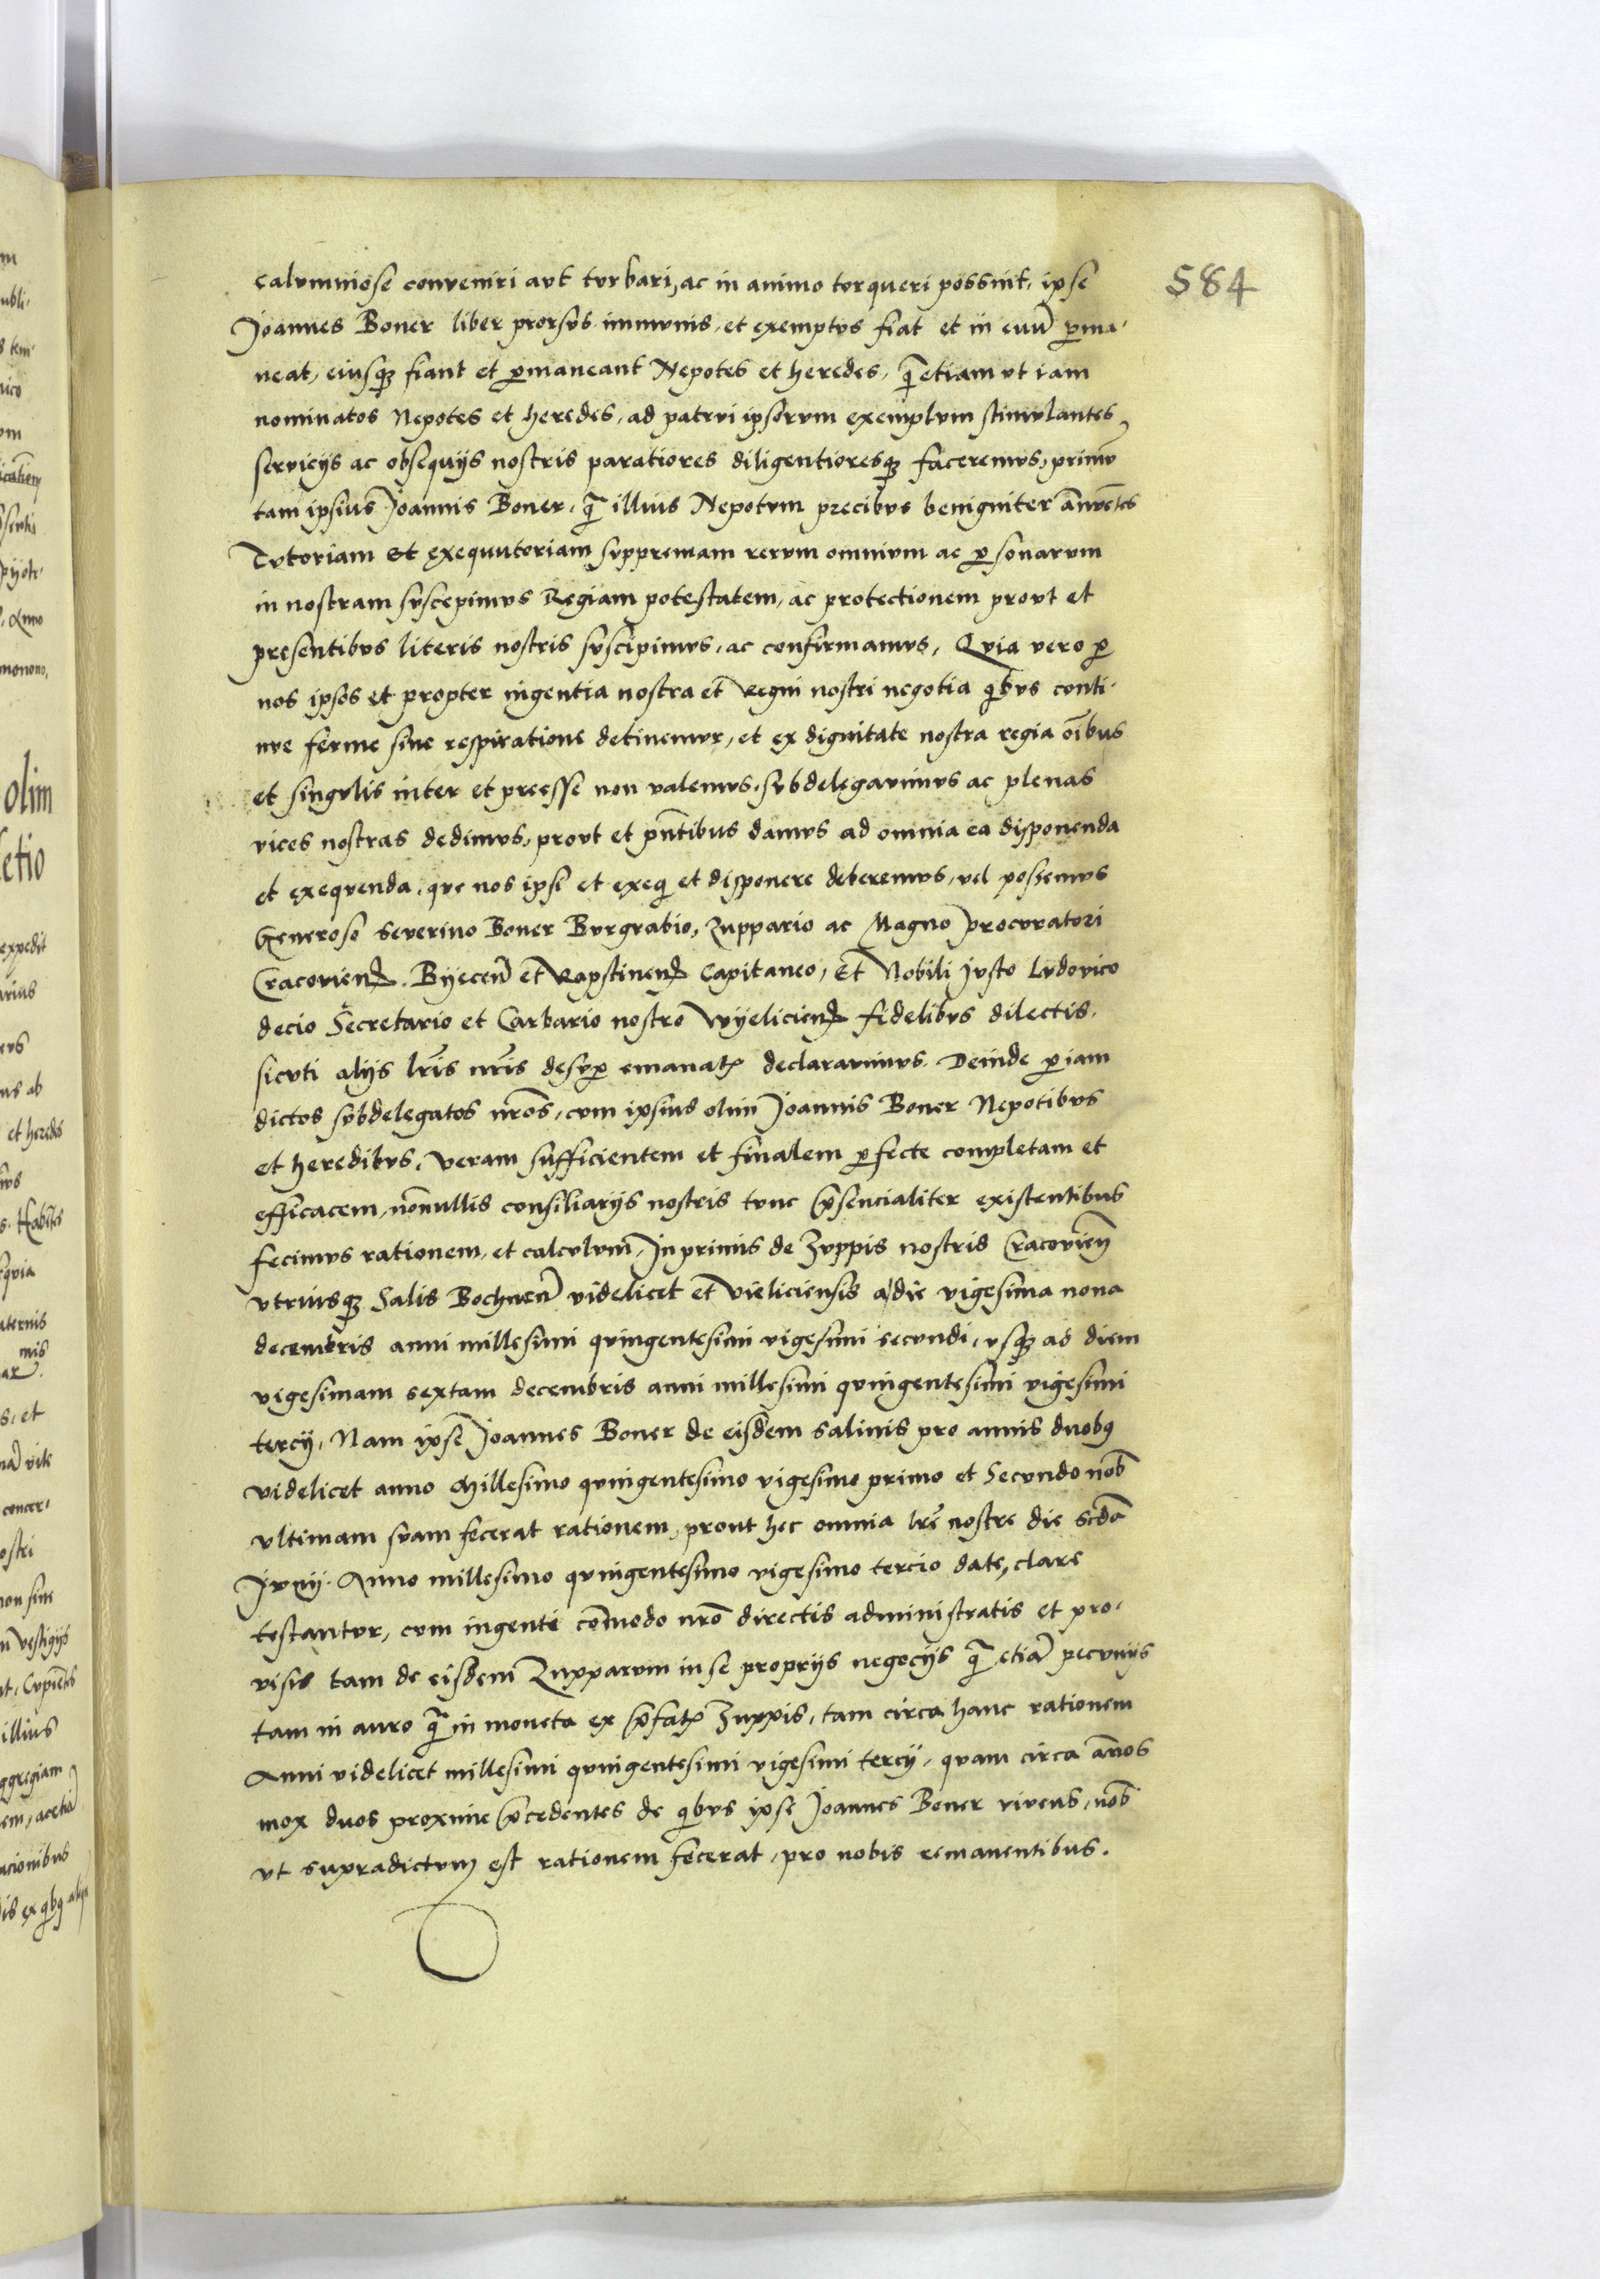 584
calvmniose conveniri avt tvrbari, ac in animo torqueri possint, ipse
Joannes Boner liber prorsvs immvnis, et exemptvs fiat et in evũ ꝑma-
neat, eiusqꝫ fiant et ꝑmaneant Nepotes et heredes, q̃ etiam vt iam
nominatos Nepotes et heredes, ad patrvi ipsorvm exemplvm stimvlantes
servicijs ac obsequijs nostris paratiores diligentioresqꝫ faceremvs, primũ
tam ipsius Joannis Boner, q̃ illius Nepotvm precibvs benigniter ãnvẽtes
Tvtoriam et exequutoriam svppremam rervm omnivm ac ꝑsonarvm
in nostram svscepimvs Regiam potestatem, ac protectionem provt et
presentibvs literis nostris svscipimvs, ac confirmamvs, Qvia vero ꝑ
nos ipsos et propter ingentia nostra et Regni nostri negotia q̃bvs conti-
nve ferme sine respiratione detinemvr, et ex dignitate nostra regia oĩbus
et singvlis inter et preesse non valemvs, svbdelegavimvs ac plenas
vices nostras dedimvs, provt et pñtibus damvs ad omnia ea disponenda
et exequenda, que nos ipsi et exeq̃ et disponere deberemvs, vel possemvs
Generoso Severino Boner Bvrgrabio, Zuppario ac Magno procvratori
Cracovien̄. Byecen̄ et Rapstinen̄ Capitaneo, Et Nobili Jvsto Lvdovico
decio Secretario et Carbario nostro Wyelicien̄ fidelibvs dilectis,
sicvti alijs lr̃is nr̃is desvꝑ emanat̃ declaravimvs. Deinde ꝑ iam
dictos svbdelegatos nr̃os, cvm ipsius olim Joannis Boner Nepotibvs
et heredibvs, veram sufficientem et finalem ꝑfecte completam et
efficacem, nõnullis consiliarijs nostris tvnc p̃sencialiter existentibus
fecimvs rationem, et calcvlvm, In primis de Zvppis nostris Cracovien̄
vtriusqꝫ Salis Bochnen̄ videlicet et Vieliciensis a die vigesima nona
decembris anni millesimi qvingentesimi vigesimi secvndi, vsqꝫ ad diem
vigesimam sextam decembris anni millesimi qvingentesimi vigesimi
tercij, Nam ipse Joannes Boner de eisdem salinis pro annis dvobꝰ
videlicet anno Millesimo qvingentesimo vigesimo primo et Secvndo nob̃
vltimam svam fecerat rationem, prout hec omnia lr̃e nostre die scdã
Jvnij. Anno millesimo qvingentesimo vigesimo tercio date, clare
testantvr, cvm ingenti cõmodo nr̃o directis administratis et pro-
visis tam de eisdem Zupparvm in se proprijs negocijs q̃ etiã pecvnijs
tam in avro q̃ in moneta ex p̃fat̃ Zuppis, tam circa hanc rationem
Anni videlicet millesimi qvingentesimi vigesimi tercij, qvam circa ãnos
mox dvos proxime p̃cedentes de q̃bvs ipse Joannes Boner vivens, nob̃
vt svpradictvm est rationem fecerat, pro nobis remanentibus.